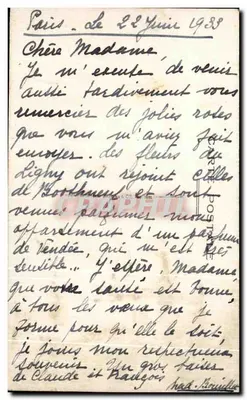 Paris - Le 22 Juin 1933
Chère Madame,
Je m'excuse de venir
aussi tardivement vous
remercier des jolies roses
que vous m'aviez fait
envoyer. Les fleurs du
Ligny ont rejoint celles
de et sont
venues parfumer mon
appartement d'un parfum
de Vendée, qui m'est très
sensible... J'espère, Madame
que votre santé est bonne,
à tous les vœux que je
forme pour qu'elle le soit,
je joins mon respectueux
souvenir. Un gros baiser
de Claude et François
Mad.